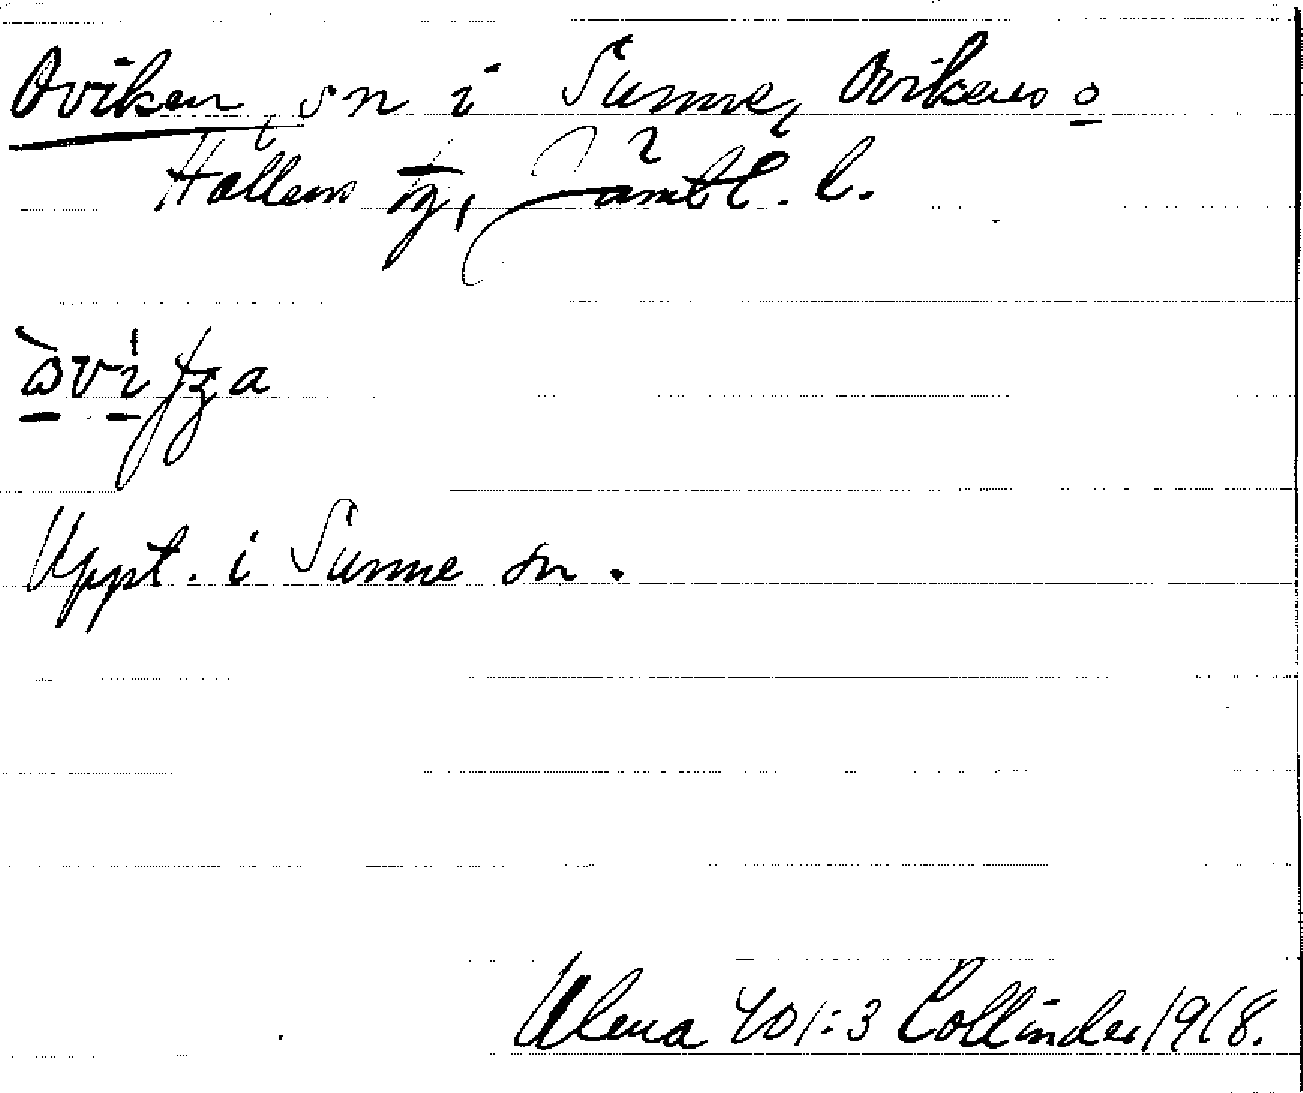 Oviken, sn i Sunne, Ovikens o
Hallens tg, Jämtl. l.
Uppt. i Sunne sn.
Ulma 401:3 Collinder 1918.